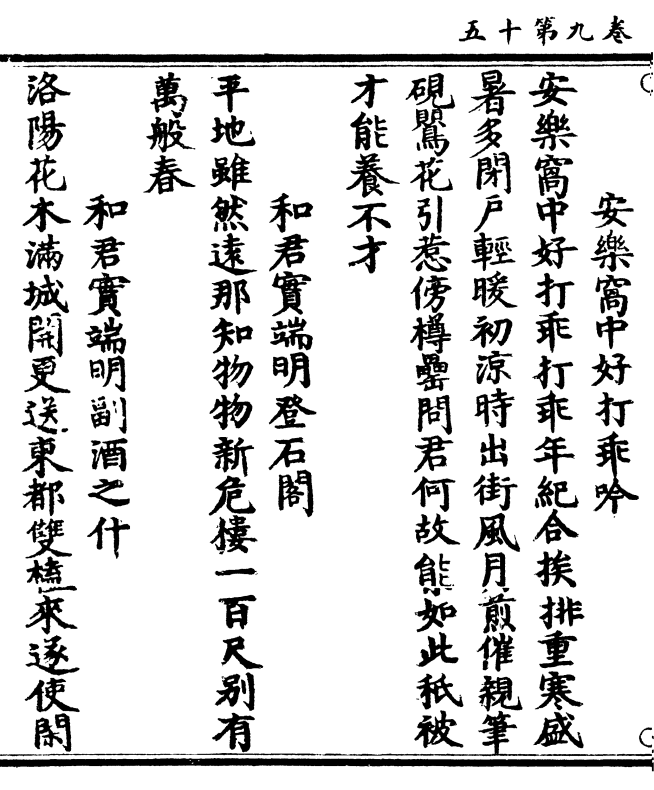 五十第九卷
安樂窩中好打乖吟
安樂窩中好打乖打乖年紀合挨排重寒盛
暑多閉戶輕暖初涼時出街風月煎催親筆
硯鶯花引惹傍樽罍問君何故能如此秪被
才能養不才
和君實端明登石閣
平地雖然遠那知物物新危樓一百尺别有
萬般春
和君實端明副酒之什
洛陽花木滿城開更送東都雙榼來遂使閑